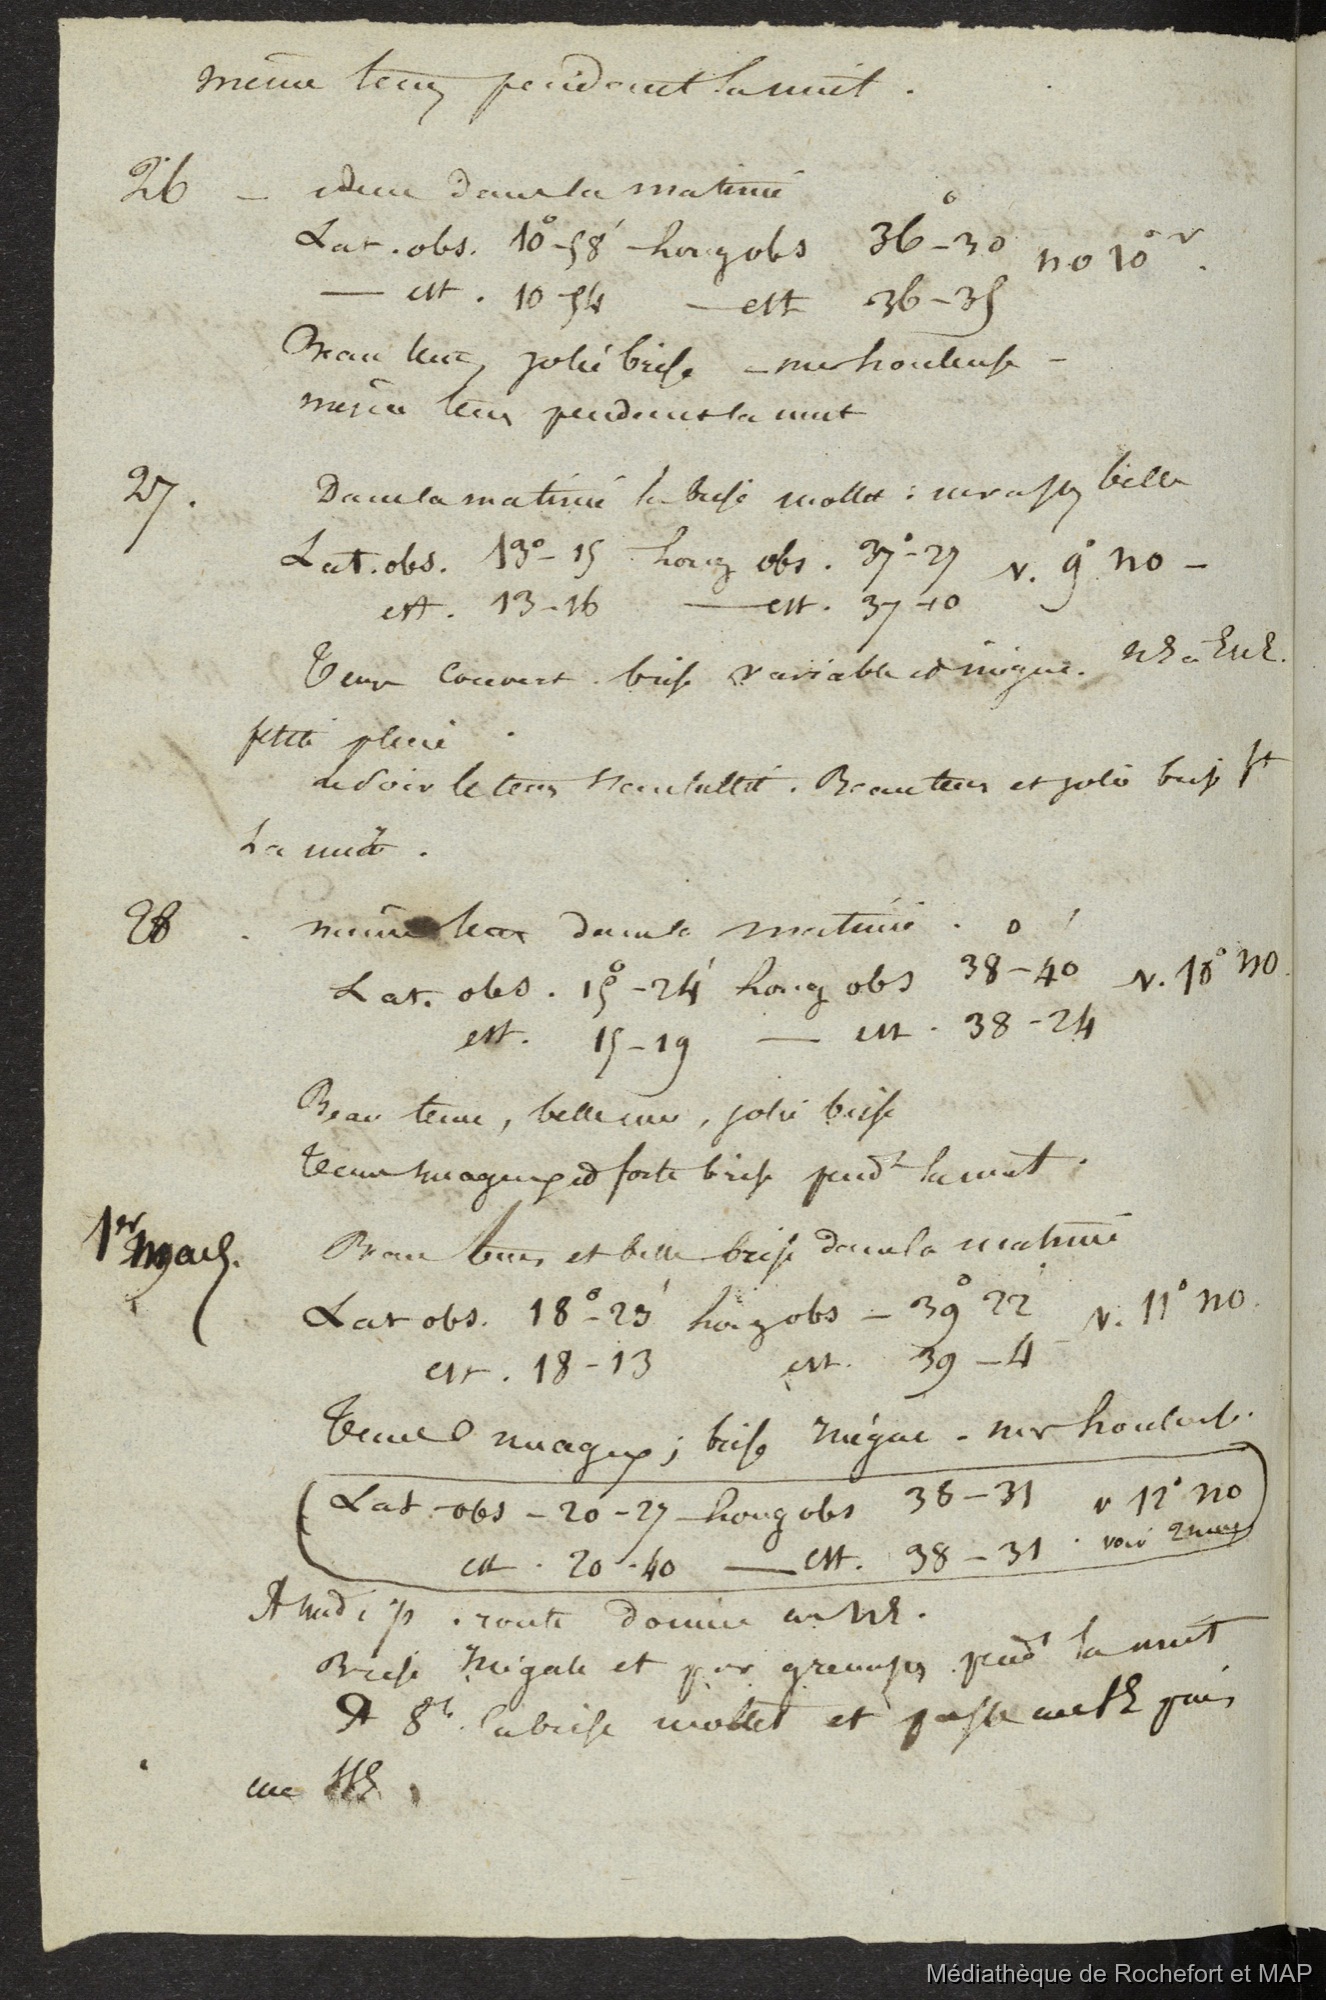 même tems pendant la nuit.
26 – idem dans la matinée
Lat. obs. 10°-58' Long obs 36°-30 no 10° v.
— est. 10-54 — est 36-35
Beau tems, jolie brise – mer houleuse –
même tems pendant la nuit
27. Dans la matinée la brise mollit : mer assez belle
Lat. obs. 13°-15 Long obs. 37°-27 v. 9° no –
est. 13-16 — est. 37-10
Tems couvert. brise variable et inégale. NE à ENE.
petite pluie.
au soir le tems s'embellit. Beau tems et jolie brise pt
La nuit.
28. même tems dans la matinée.
Lat. obs. 15°-24' Long obs 38°-40' v. 10° no.
est. 15-19 — est. 38-24
Beau tems, belle mer, jolie brise
Tems nuageux et forte brise pendt la nuit.
1er Mars. Beau tems et belle brise dans la matinée
Lat obs. 18°-23' Long obs – 39° 22' v. 11° no.
est. 18-13 est. 39-4
Tems nuageux; brise inégale – mer houleuse.
Lat – obs – 20-27 – Long obs 38-31 v 12° no
est. 20-40 — est. 38-31. voir 2 mars
A midi p. route donnée au NE.
Brise inégale et par grains pendt la nuit
A 8h. la brise mollit et passe au SE puis
au SSE.